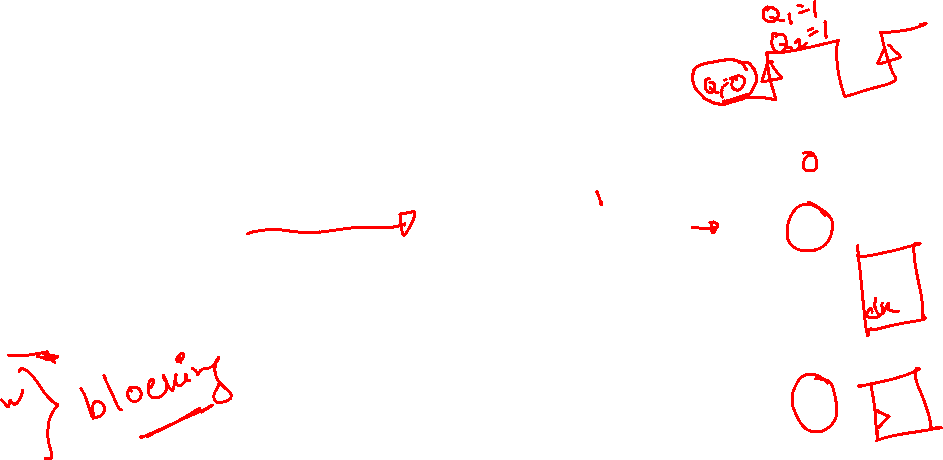 Q1=1
Q2=1
Q1=0
0
1
clk
w
blocking